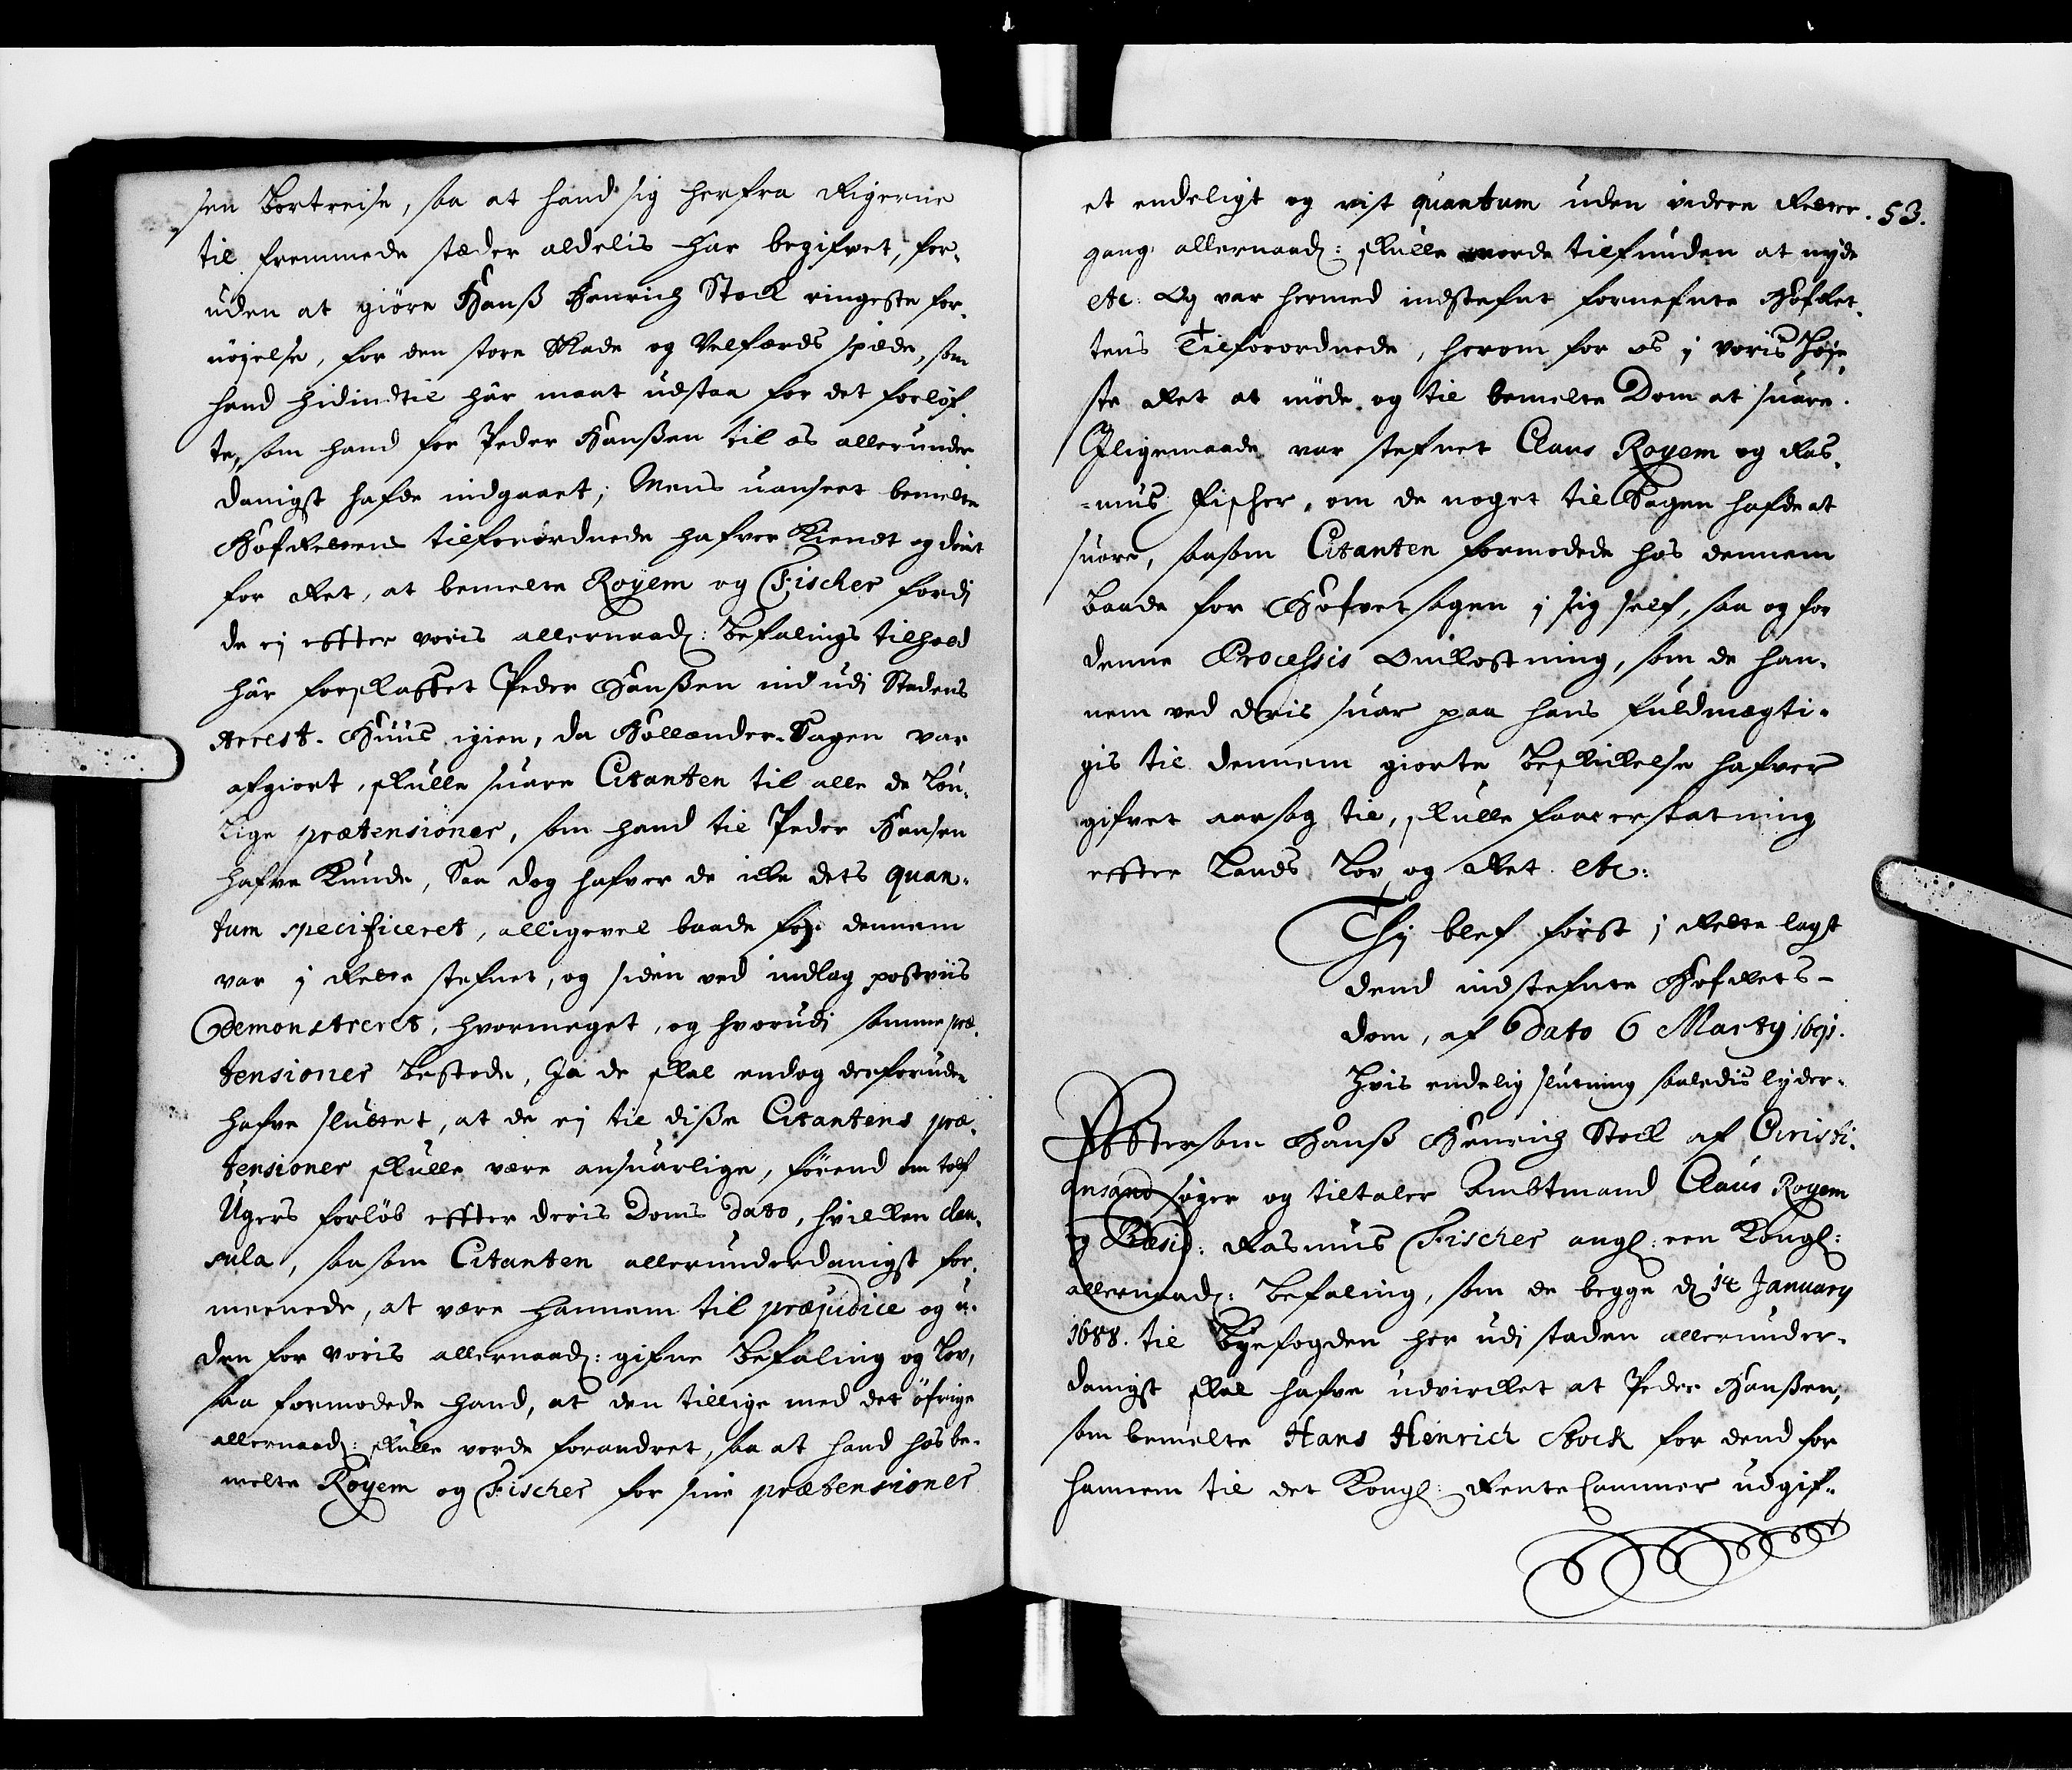 sen bortreise, saa at hand sig herfra Rigerne
til fremmede stæder aldelis har begifvet, for-
uden at giöre Hanß Henrich Stock ringeste for-
nöyelse, for den store Skade og Velfærds spilde, som
hand hidindtil har maat udstaa for det forløf-
te, som hand for Peder Hanßen til os allerunder-
danigst hafde indgaaet; Mens uanseet bemelte
HofRettens tilforordnede hafver Kiendt og dömt
for Ret, at bemelte Royem og Fischer fordi
de ej effter voris allernaad: befalings tilhold
har forskaffet Peder Hanßen ind udi Stadens
Arrest-Huus igien, da Hollænder-Sagen var
afgiort, skulle suare Citanten til alle de lou-
lige prætensioner, som hand til Peder Hansen
hafve Kunde, Saa dog hafver de icke dets quan-
tum specificeret, alligevel baade for dennem
var j Rette stefnet, og siden ved indlæg postviis
demonstreret, hvormeget, og hvorudi samme præ-
tensioner bestode, Ja de skal endog derforuden
hafve sluttet, at de ej til diße Citantens præ-
tensioner skulle være ansuarlige, förend om tolf
Ugers forlöb effter deris Doms dato, hvilken clau-
sula, saasom Citanten allerunderdanigst for-
meenede, at være hannem til præjudice og u-
den for voris allernaad: gifne befaling og Lov,
saa formodede hand, at den tillige med det öfrige
allernaad: skulle vorde forandret, saa at hand hos be-
melte Royem og Fischer for sine prætensioner
et endeligt og vist quantum uden videre Retter- 53.
gang allernaad: skulle vorde tilfunden at nyde
etc: Og var hermed indstefnt fornefnte HofRet-
tens Tilforordnede, herom for os j voris Høje-
ste Ret at möde og til bemelte Dom at suare.
Jligemaade var stefnet Claus Royem og Ras-
-mus Fischer, om de noget til Sagen hafde at
suare, saasom Citanten formodede hos dennem
baade for Hofvetsagen j sig self, saa og for
denne Processis Omkostning, som de han-
nem ved deris suar paa hans fuldmægti-
gis til dennem giorte beskickelse hafver
gifvet aarsag til, skulle faae erstatning
effter Lands Lov og Ret etc:
Thj blef först j Rette lagt
dend indstefnte HofRets-
dom, af Dato 6 Martij 1691.
hvis endelig slutning saaledis lyder.
Effterson Hanß Henrich Stock af Christi-
ansand söger og tiltaler Ambtmand Claus Royem
og Præsid: Rasmus Fischer angl: een Kongl:
allernaad: befaling, som de begge d 14 January
1688. til Byefogden her udi staden allerunder-
danigst skal hafve udvircket at Peder Hanßen,
som bemelte Hans Henrich Stock for dend for
hannem til det Kongl: Rente Cammer udgif-